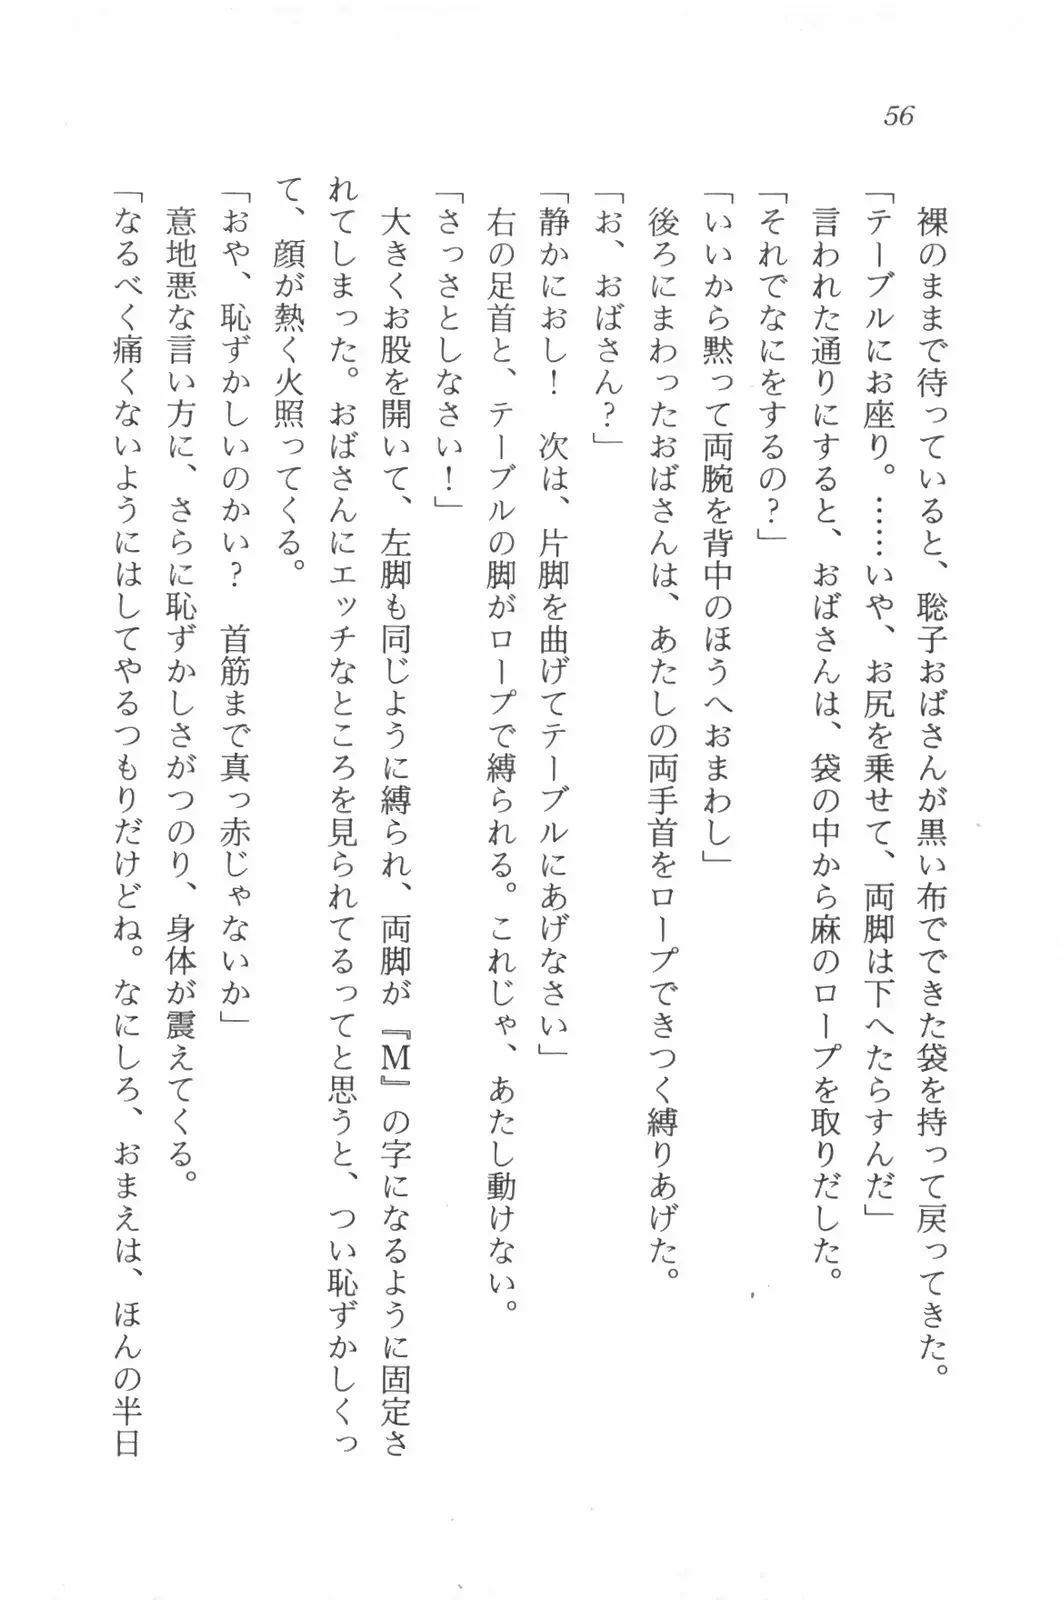 56
裸のままで待っていると、聡子おばさんが黒い布でできた袋を持って戻ってきた。
「テーブルにお座り。……いや、お尻を乗せて、両脚は下へたらすんだ」
言われた通りにすると、おばさんは、袋の中から麻のロープを取りだした。
「それでなにをするの？」
「いいから黙って両腕を背中のほうへおまわし」
後ろにまわったおばさんは、あたしの両手首をロープできつく縛りあげた。
「お、おばさん？」
「静かにおし！　次は、片脚を曲げてテーブルにあげなさい」
右の足首と、テーブルの脚がロープで縛られる。これじゃ、あたし動けない。
「さっさとしなさい！」
大きくお股を開いて、左脚も同じように縛られ、両脚が『Ｍ』の字になるように固定さ
れてしまった。おばさんにエッチなところを見られてるって思うと、つい恥ずかしくっ
て、顔が熱く火照ってくる。
「おや、恥ずかしいのかい？　首筋まで真っ赤じゃないか」
意地悪な言い方に、さらに恥ずかしさがつのり、身体が震えてくる。
「なるべく痛くないようにはしてやるつもりだけどね。なにしろ、おまえは、ほんの半日